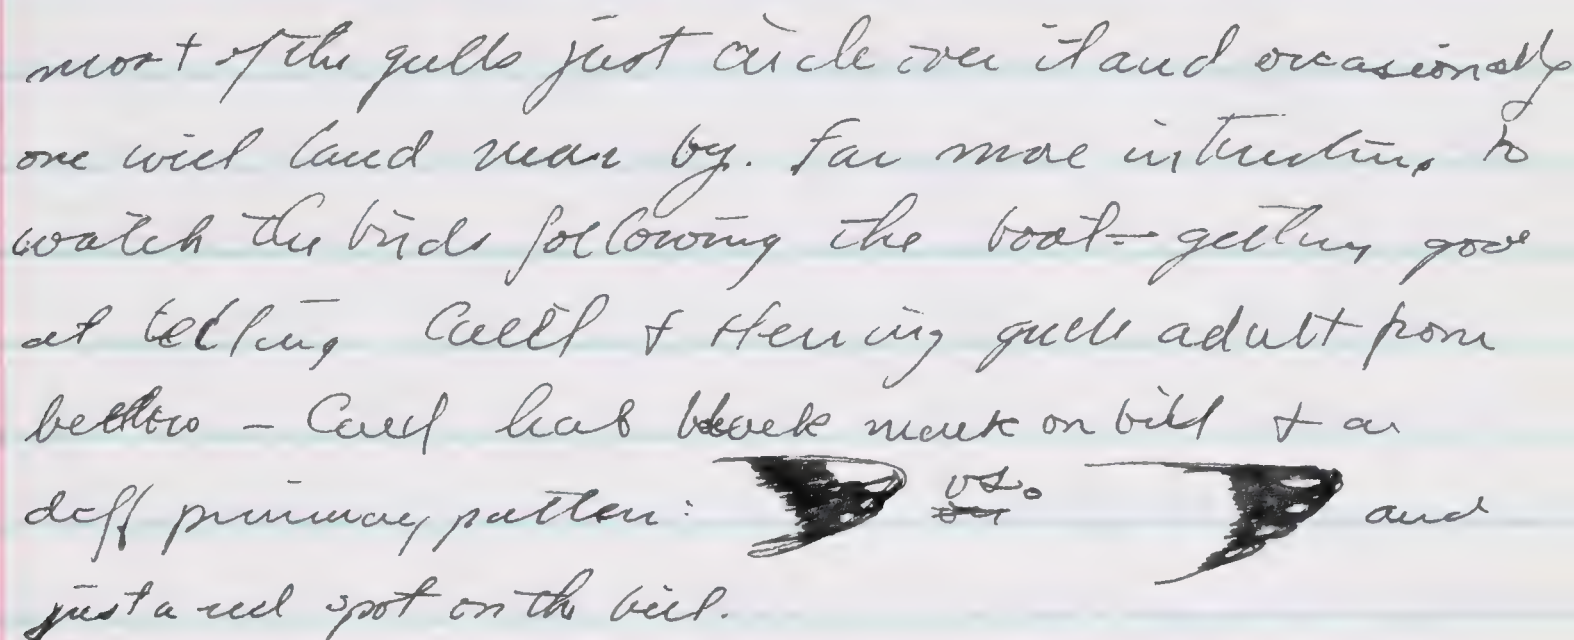 most of the gulls just circle over it and occasionally
one will land near by. Far more interesting to
watch the birds following the boat - getting good
at telling Calif & Herring gulls adult from
below - Calif has black mark on bill & a
diff primary pattern: vs. and
just a red spot on the bill.